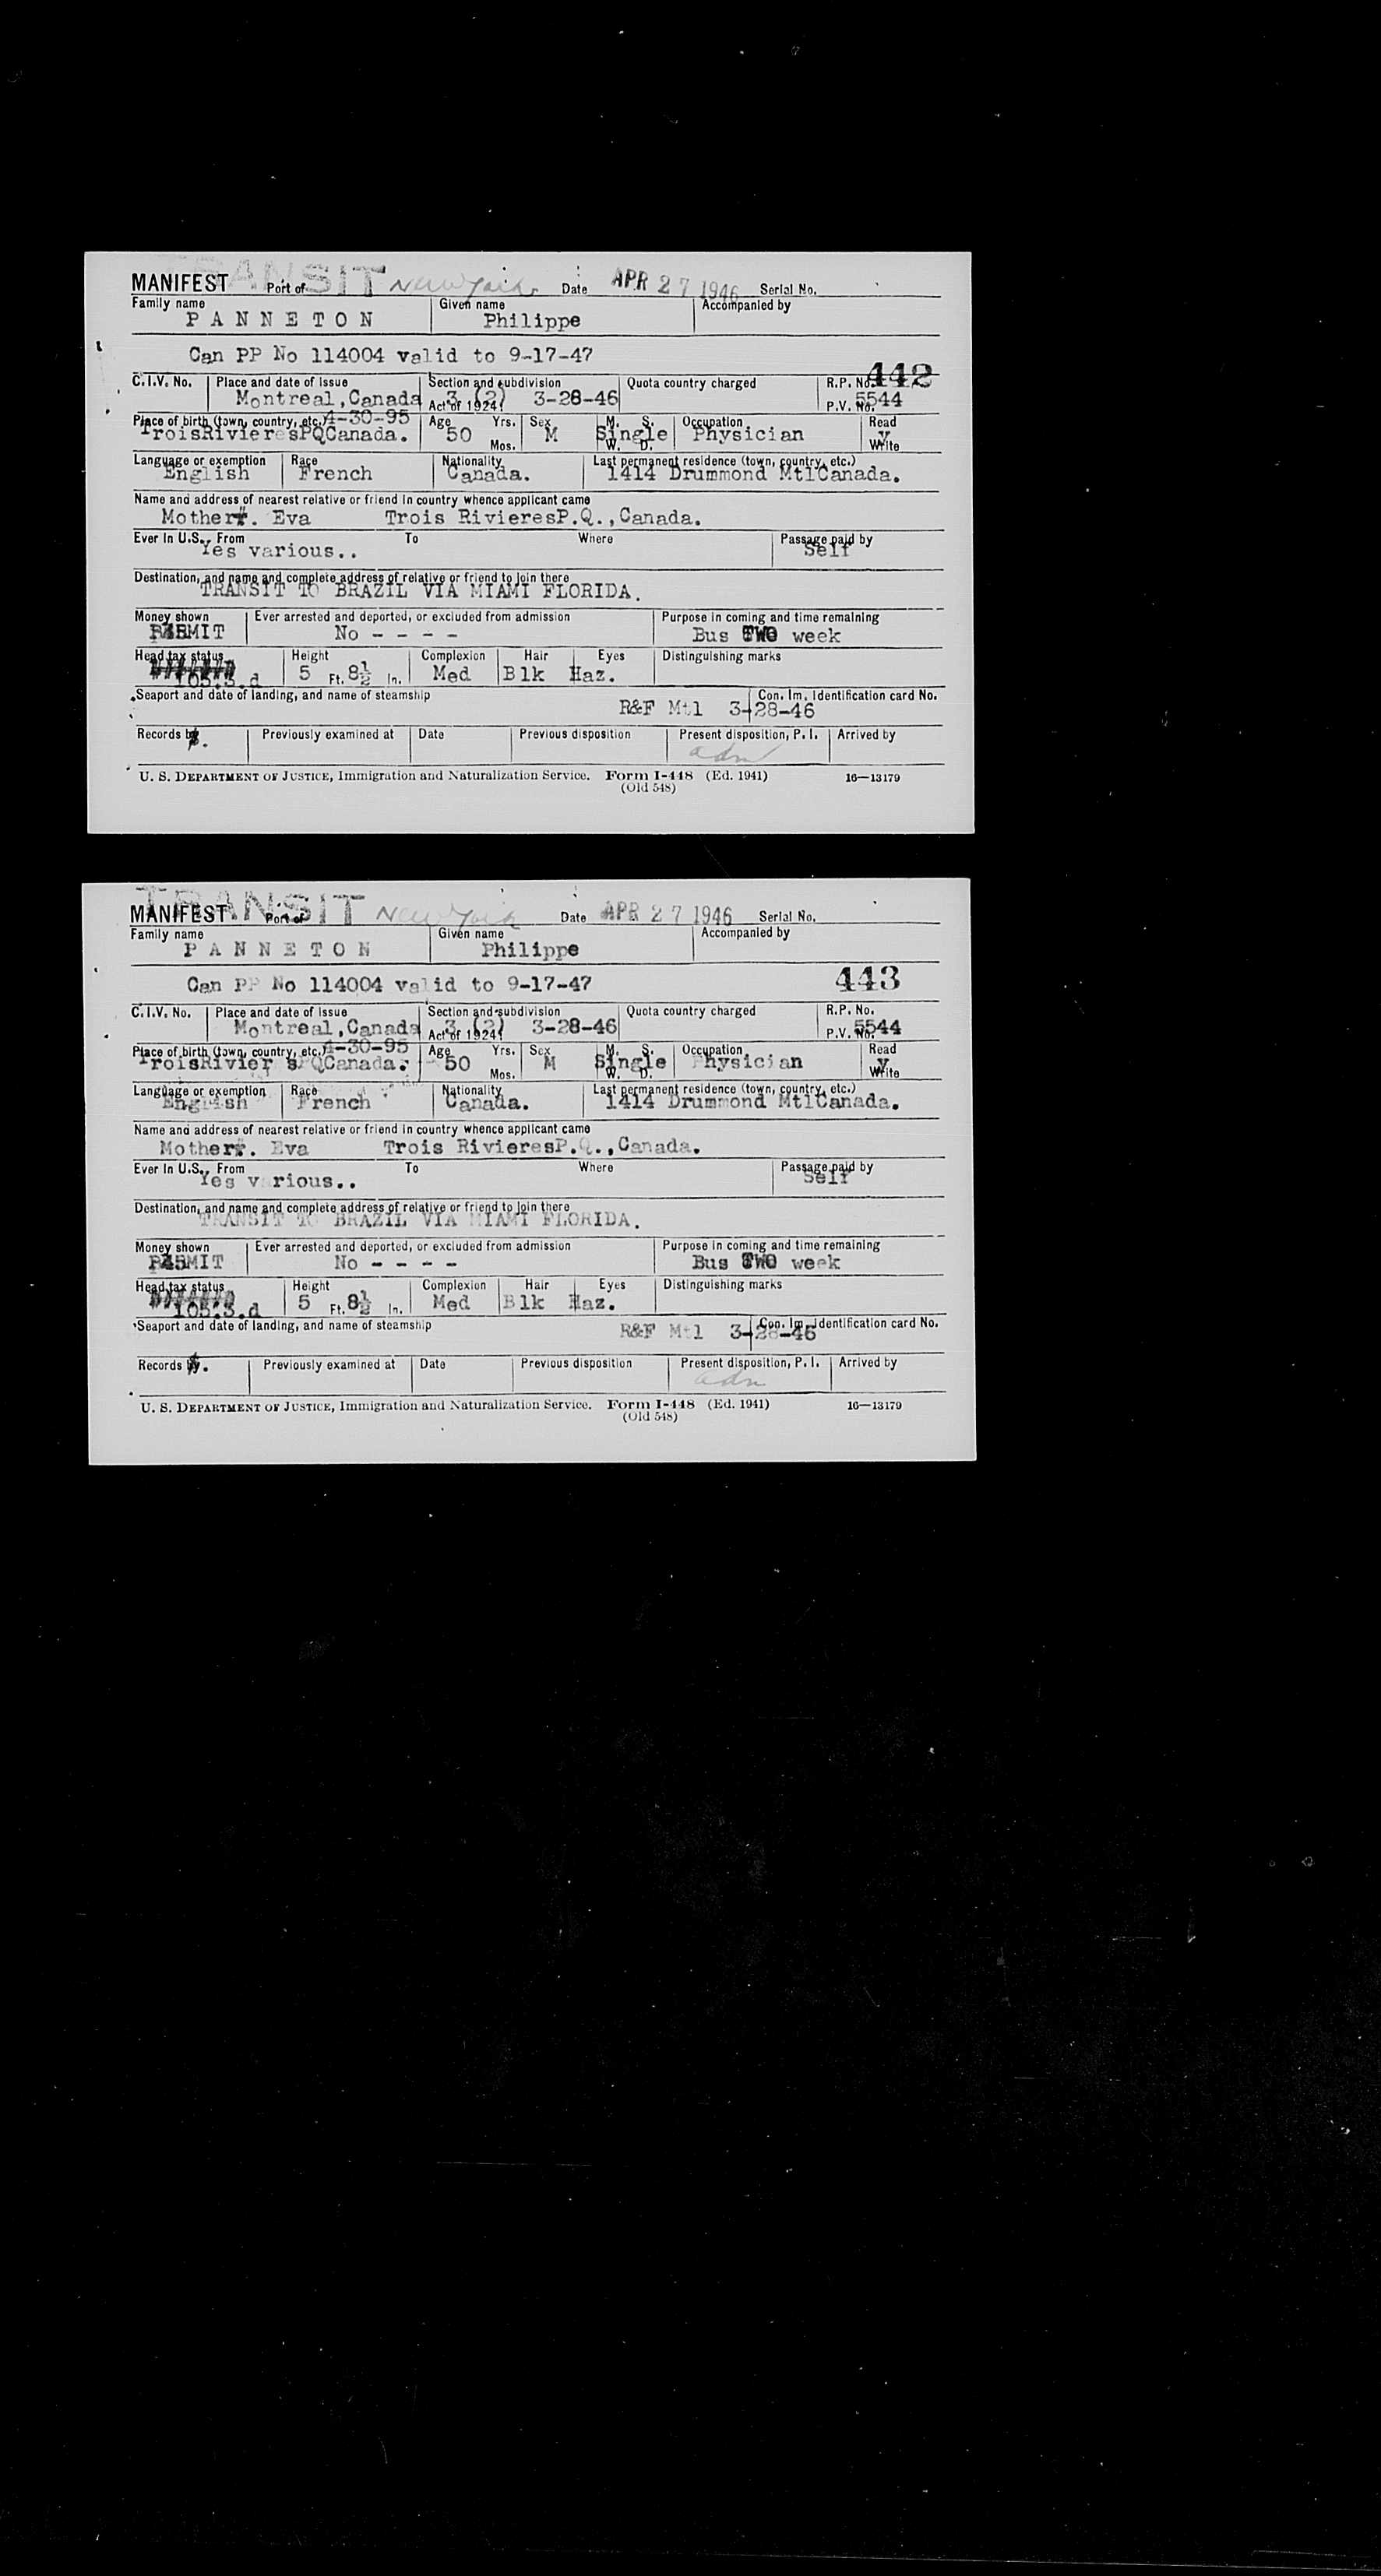 TRANSIT
MANIFEST Port of New York Date APR 27 1946 Serial No.
Family name Given name Accompanied by
PANNETON Philippe
Can PP No 114004 valid to 9-17-47
442
C.I.V. No. Place and date of issue Section and subdivision Quota country charged R.P. No.
Montreal,Canada Act of 1924 3 (2) 3-28-46 P.V. No. 5544
Place of birth (town, country, etc.) 4-30-95 Age Yrs. Sex M. S. Occupation Read
TroisRivieresPQCanada. 50 Mos. M Single W. D. Physician y Write
Language or exemption Race Nationality Last permanent residence (town, country, etc.)
English French Canada. 1414 Drummond MtlCanada.
Name and address of nearest relative or friend in country whence applicant came
Mother. Eva Trois RivieresP.Q.,Canada.
Ever in U.S. From To Where Passage paid by
Yes various.. Self
Destination, and name and complete address of relative or friend to join there
TRANSIT TO BRAZIL VIA MIAMI FLORIDA.
Money shown Ever arrested and deported, or excluded from admission Purpose in coming and time remaining
No - - - - Bus TWO week
Head tax status Height Complexion Hair Eyes Distinguishing marks
105:3.d 5 Ft. 8½ In. Med Blk Haz.
Seaport and date of landing, and name of steamship Con. Im. Identification card No.
R&F Mtl 3-28-46
Records by Previously examined at Date Previous disposition Present disposition, P. I. Arrived by
adm
U. S. DEPARTMENT OF JUSTICE, Immigration and Naturalization Service. Form I-448 (Ed. 1941) 16—13179
(Old 548)
TRANSIT
MANIFEST Port of New York Date APR 27 1946 Serial No.
Family name Given name Accompanied by
PANNETON Philippe
Can PP No 114004 valid to 9-17-47
443
C.I.V. No. Place and date of issue Section and subdivision Quota country charged R.P. No.
Montreal,Canada Act of 1924 3 (2) 3-28-46 P.V. No. 5544
Place of birth (town, country, etc.) 4-30-95 Age Yrs. Sex M. S. Occupation Read
TroisRivier sPQCanada. 50 Mos. M Single W. D. Physician y Write
Language or exemption Race Nationality Last permanent residence (town, country, etc.)
English French Canada. 1414 Drummond MtlCanada.
Name and address of nearest relative or friend in country whence applicant came
Mother. Eva Trois RivieresP.Q.,Canada.
Ever in U.S. From To Where Passage paid by
Yes various.. Self
Destination, and name and complete address of relative or friend to join there
TRANSIT TO BRAZIL VIA MIAMI FLORIDA.
Money shown Ever arrested and deported, or excluded from admission Purpose in coming and time remaining
No - - - - Bus TWO week
Head tax status Height Complexion Hair Eyes Distinguishing marks
105:3.d 5 Ft. 8½ In. Med Blk Haz.
Seaport and date of landing, and name of steamship Con. Im. Identification card No.
R&F Mtl 3-28-46
Records by Previously examined at Date Previous disposition Present disposition, P. I. Arrived by
adm
U. S. DEPARTMENT OF JUSTICE, Immigration and Naturalization Service. Form I-448 (Ed. 1941) 16—13179
(Old 548)